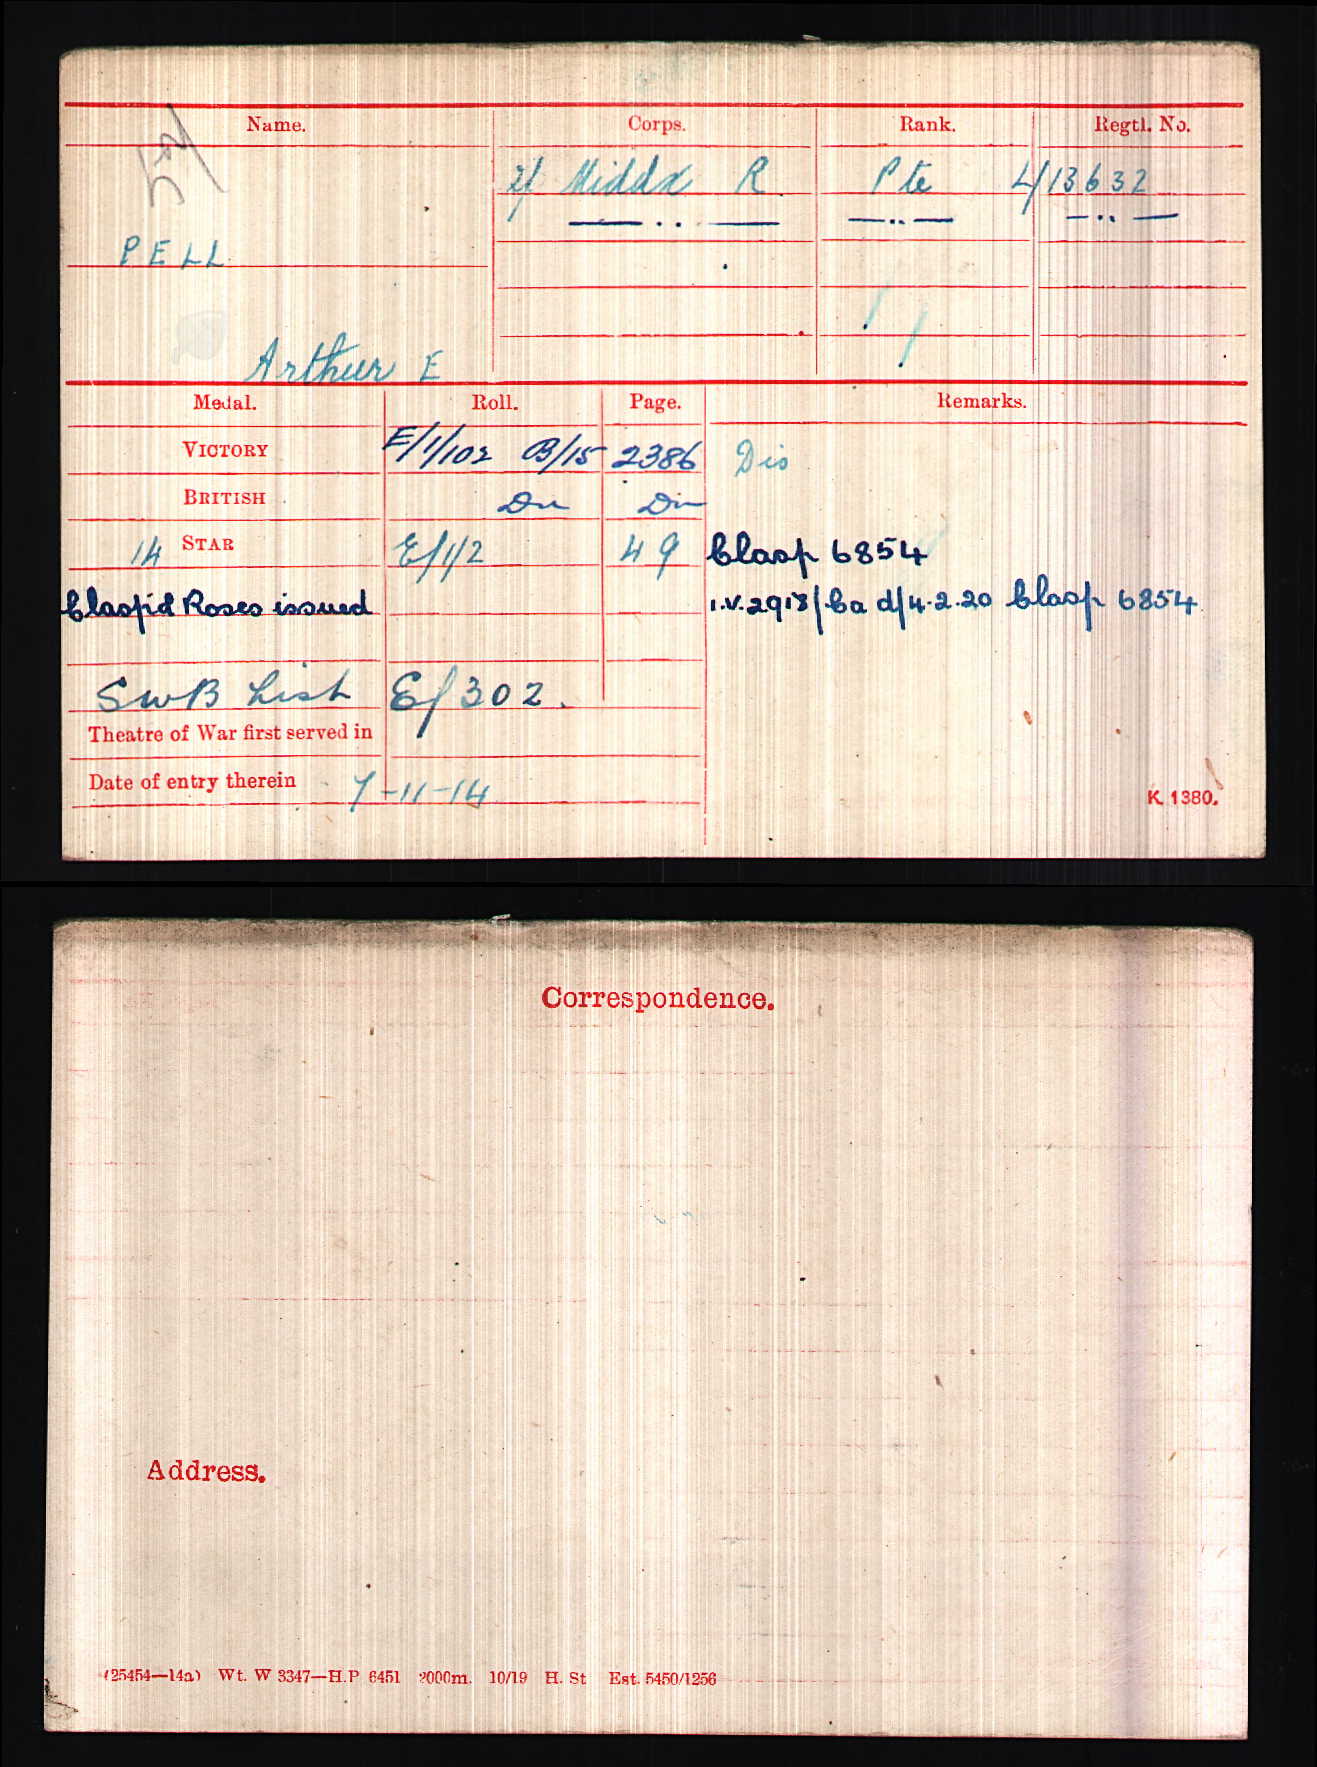 Name. Corps. Rank. Regtl. No.
2/ Middx R Pte L/13632
—..— —..— —..—
PELL
Arthur E
Medal. Roll. Page. Remarks.
VICTORY E/1/102 B/15 2386 Dis
BRITISH Do Do
14 STAR E/1/2 49 Clasp 6854
Clasp & Roses issued I.V.2918/Ca d/4.2.20 Clasp 6854
SWB List E/302.
Theatre of War first served in
Date of entry therein 7-11-14
K. 1380.
Correspondence.
Address.
(25454—14a) Wt. W 3347—H.P 6451 2000m. 10/19 H. St Est. 5450/1256